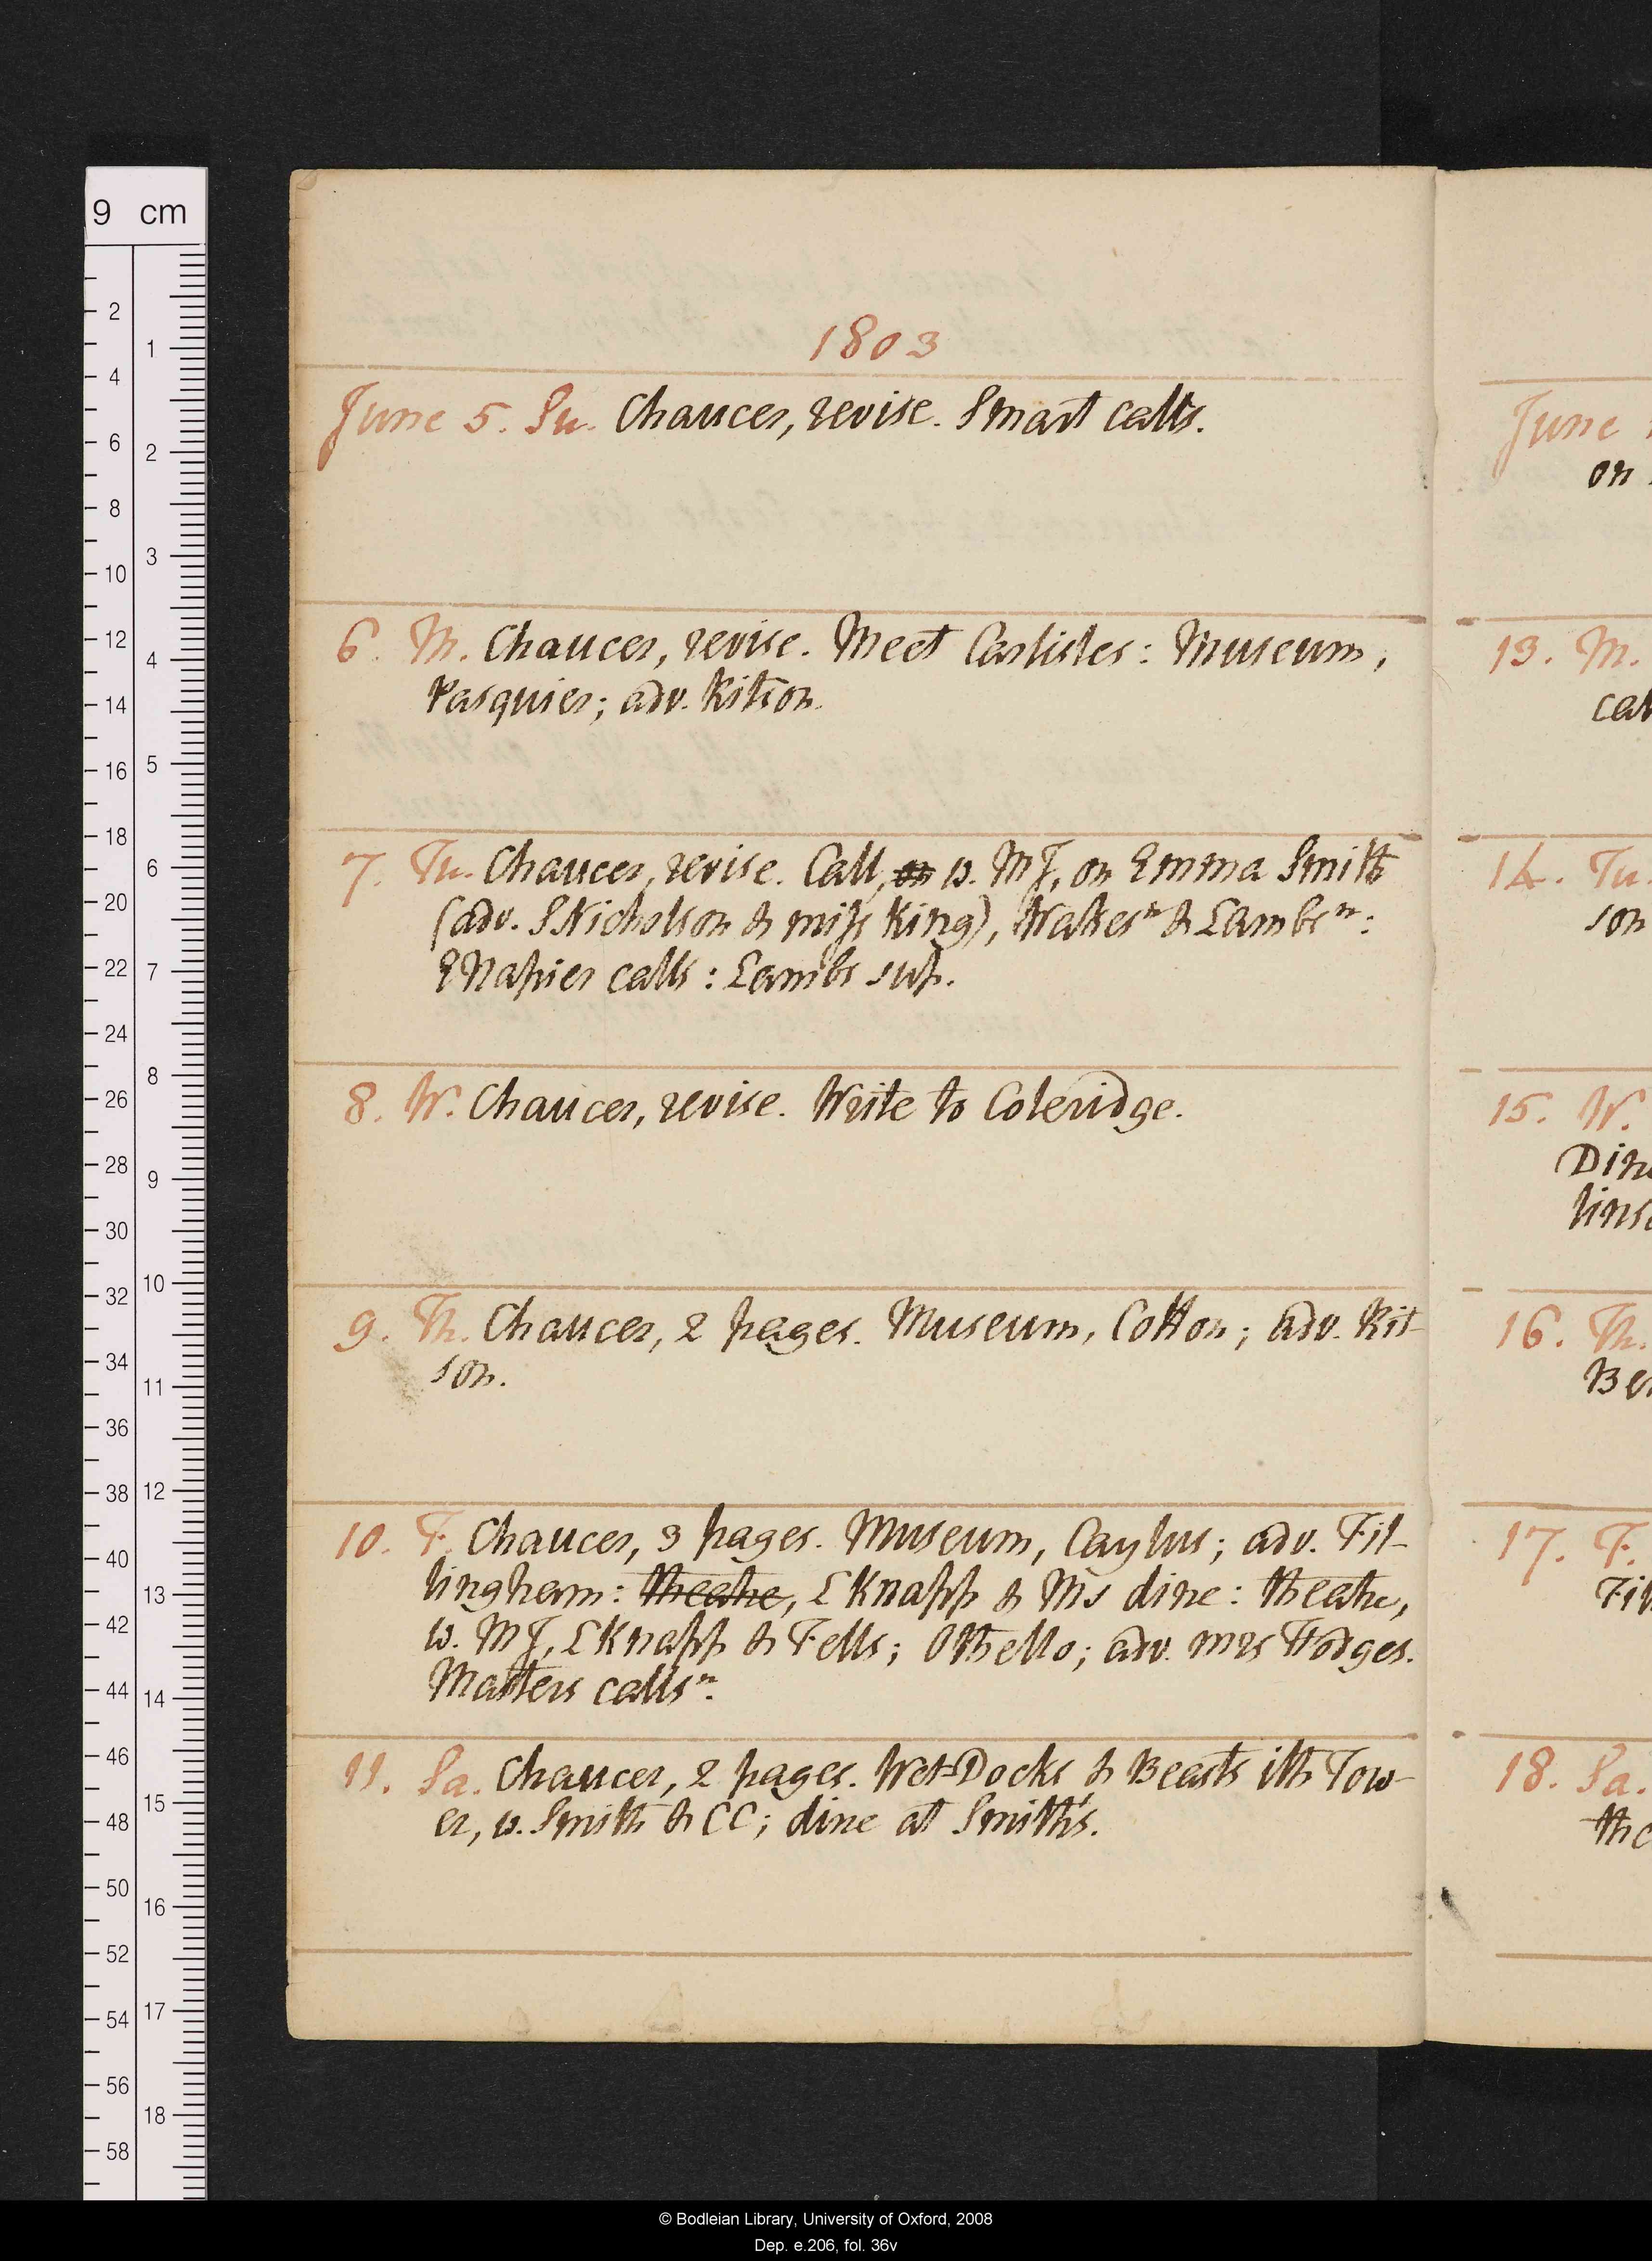 1803
June 5. Su. Chaucer, revise. Smart calls.
6. M. Chaucer, revise. Meet Carlisles: Museum,
Pasquier; adv. Ritson.
7. Tu. Chaucer, revise. Call, on w. MJ, on Emma Smith
(adv. SNicholson & miss King), Wakesⁿ & Lambsⁿ:
ENapier calls: Lambs sup.
8. W. Chaucer, revise. Write to Coleridge.
9. Th. Chaucer, 2 pages. Museum, Cotton; adv. Rit-
son.
10. F. Chaucer, 3 pages. Museum, Caylus; adv. Fil-
lingham: theatre, LKnapp & Ms dine: theatre,
w. MJ, LKnapp & Fells; Othello; adv. mrs Hodges.
Masters callsⁿ.
11. Sa. Chaucer, 2 pages. Wet-Docks & Beasts ith Tow-
er, w. Smith & CC; dine at Smith's.
June
on
13. M.
cal
14. Tu.
son
15. W.
Dine
linso
16. Th.
Ber
17. F.
Fil
18. Sa.
the
9 cm
2
4
6
8
10
12
14
16
18
20
22
24
26
28
30
32
34
36
38
40
42
44
46
48
50
52
54
56
58
1
2
3
4
5
6
7
8
9
10
11
12
13
14
15
16
17
18
© Bodleian Library, University of Oxford, 2008
Dep. e.206, fol. 36v